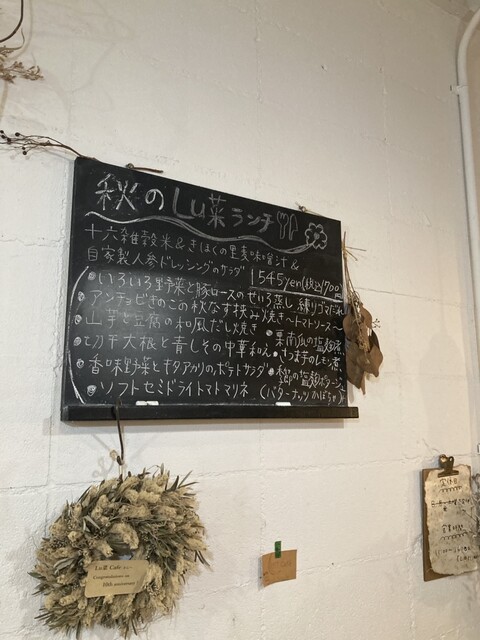 秋のLu菜ランチ
十六雑穀米&きほくの里麦味噌汁&
自家製人参ドレッシングのサラダ
1545yen(税込1700)
・いろいろ野菜と豚ロースのせいろ蒸し 練りゴマだれ
・アンチョビきのこの秋なす挟み焼き〜トマトソース〜
・山芋と豆腐の和風だし焼き
・栗南瓜の塩麹煮
・切干大根と青しその中華和え
・さつま芋のレモン煮
・香味野菜とキタアカリのポテトサラダ
の塩麹ポタージュ
・ソフトセミドライトマトマリネ
(バターナッツかぼちゃ)
Lu菜 Café
Congratulations on
10th anniversary
定休日
営業時間